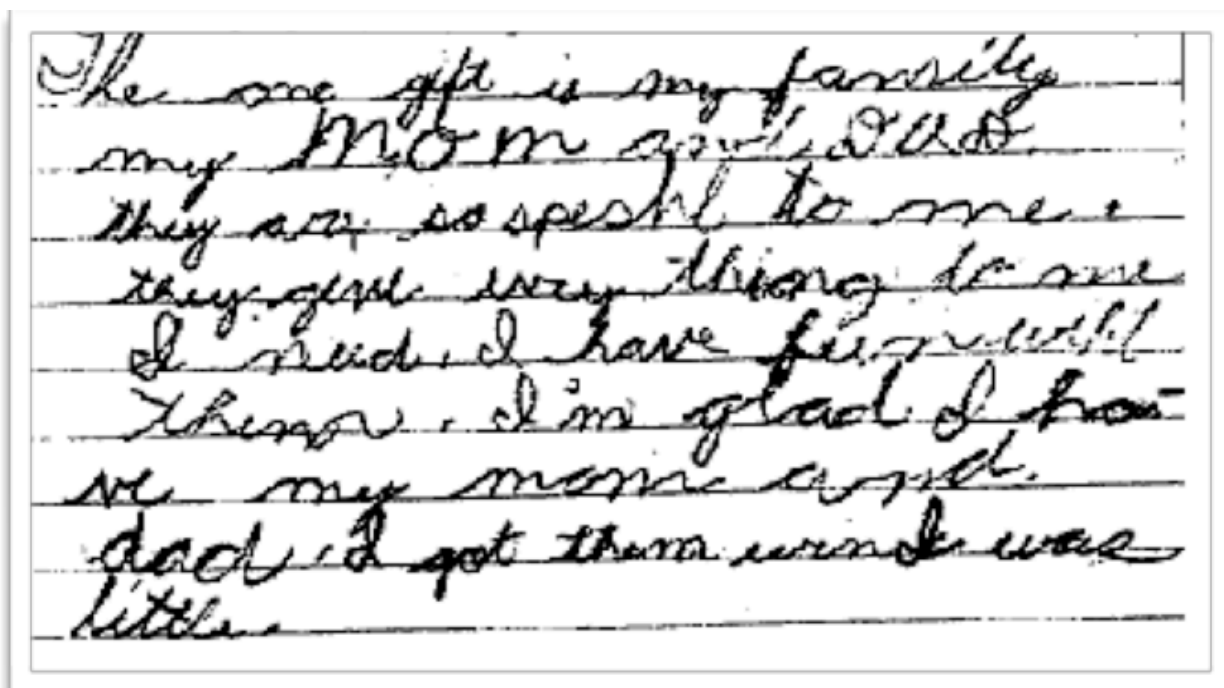 The one gift is my family
my Mom and DAD
they are so speshl to me.
they give evry thing to me
I need. I have fun with
them. I'm glad I ha-
ve my mom and
dad. I got them wen I was
little.